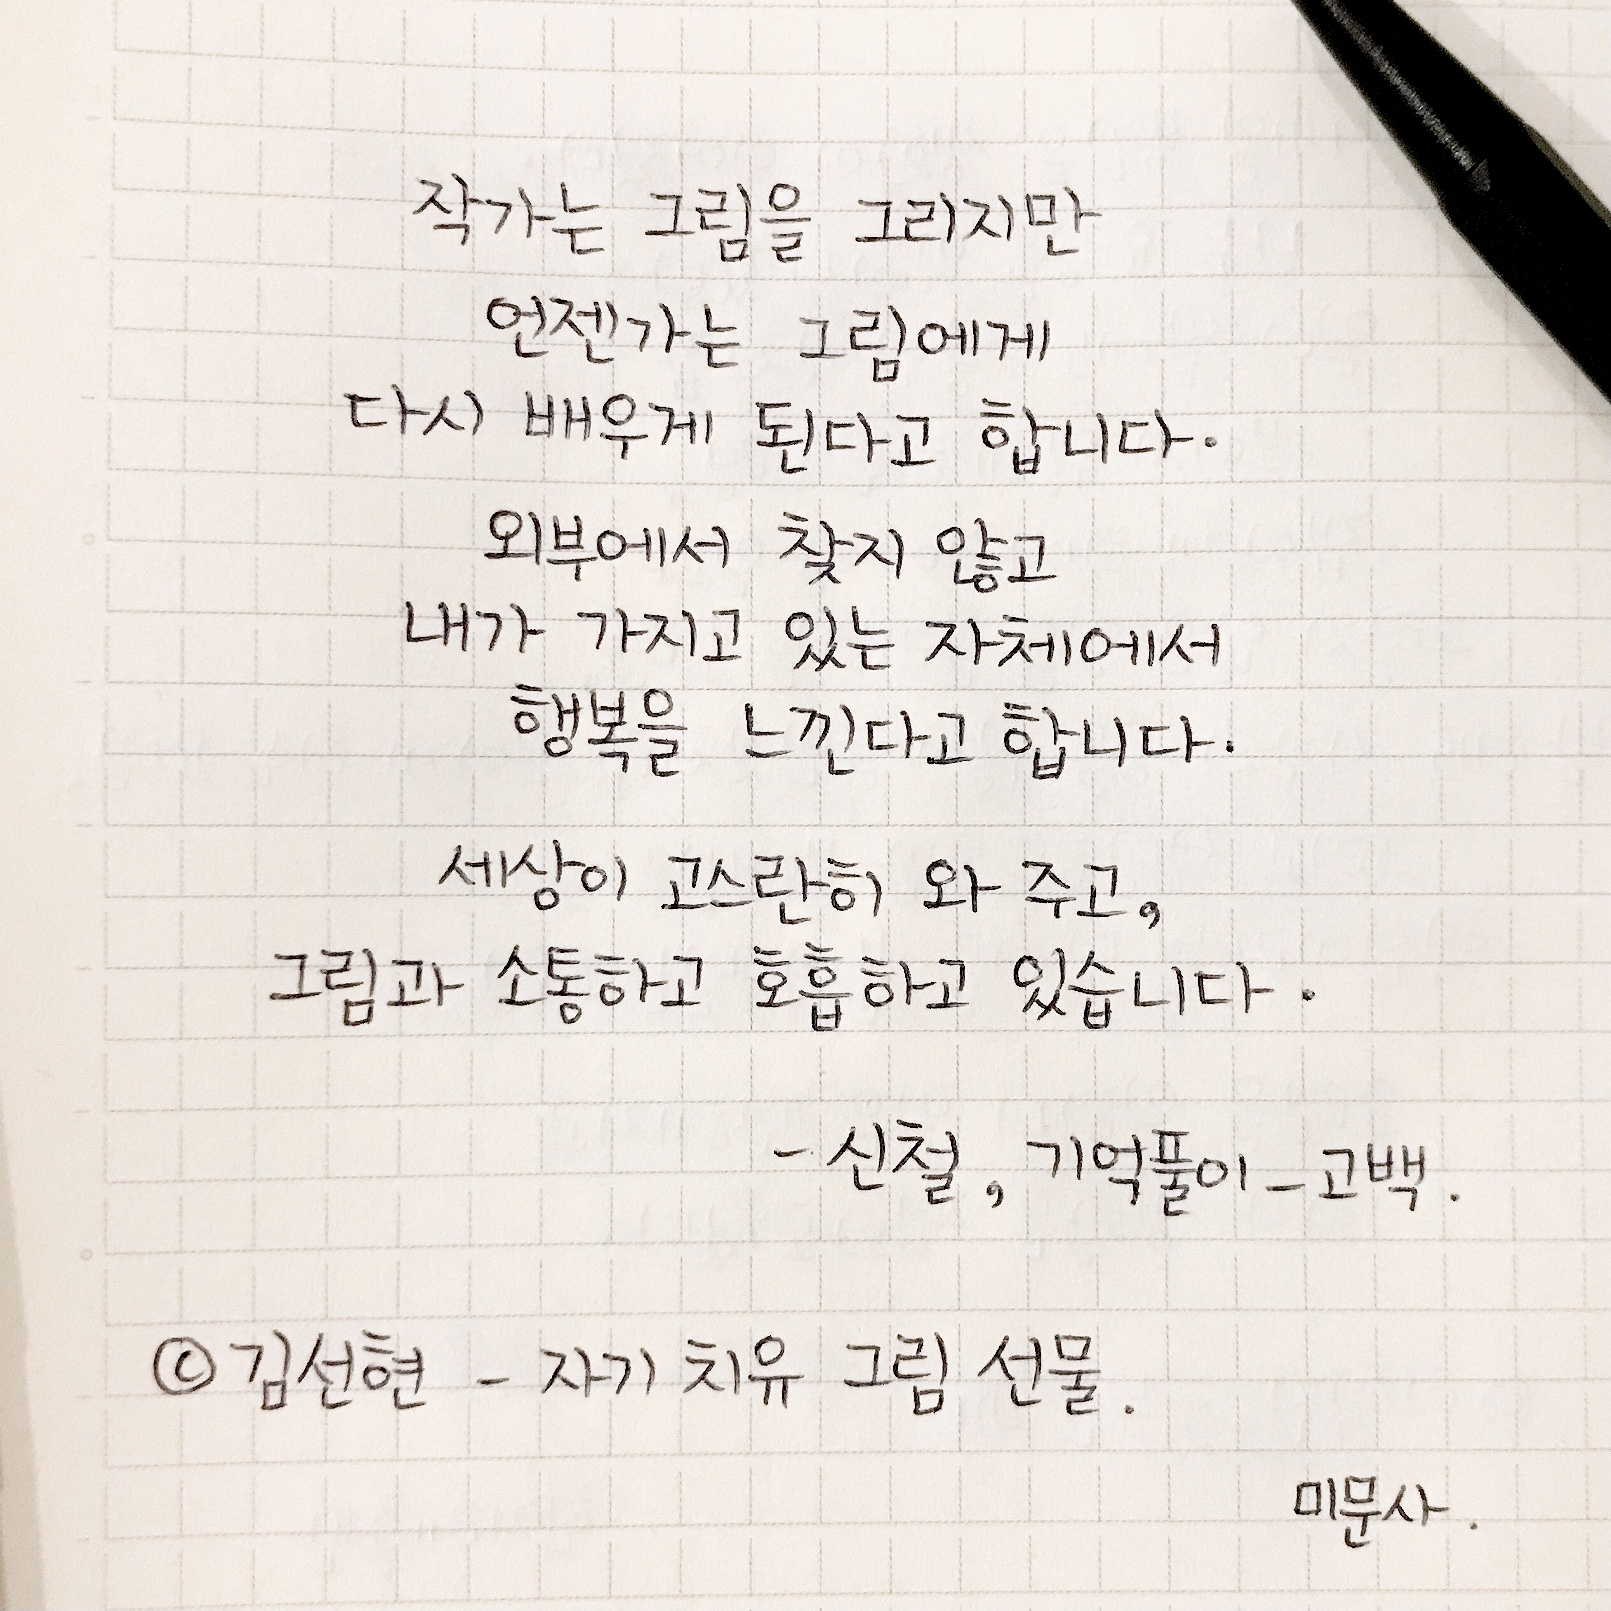 작가는 그림을 그리지만
언젠가는 그림에게
다시 배우게 된다고 합니다.
외부에서 찾지 않고
내가 가지고 있는 자체에서
행복을 느낀다고 합니다.
세상이 고스란히 와 주고,
그림과 소통하고 호흡하고 있습니다.
- 신철, 기억풀이 - 고백.
© 김선현 - 자기 치유 그림 선물.
미문사.